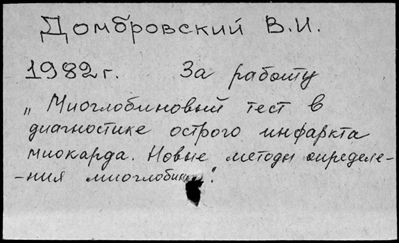 Домбровский В.И.
1982г. За работу
„Миоглобиновый тест в
диагностике острого инфаркта
миокарда. Новые методы определе-
-ния миоглобина".